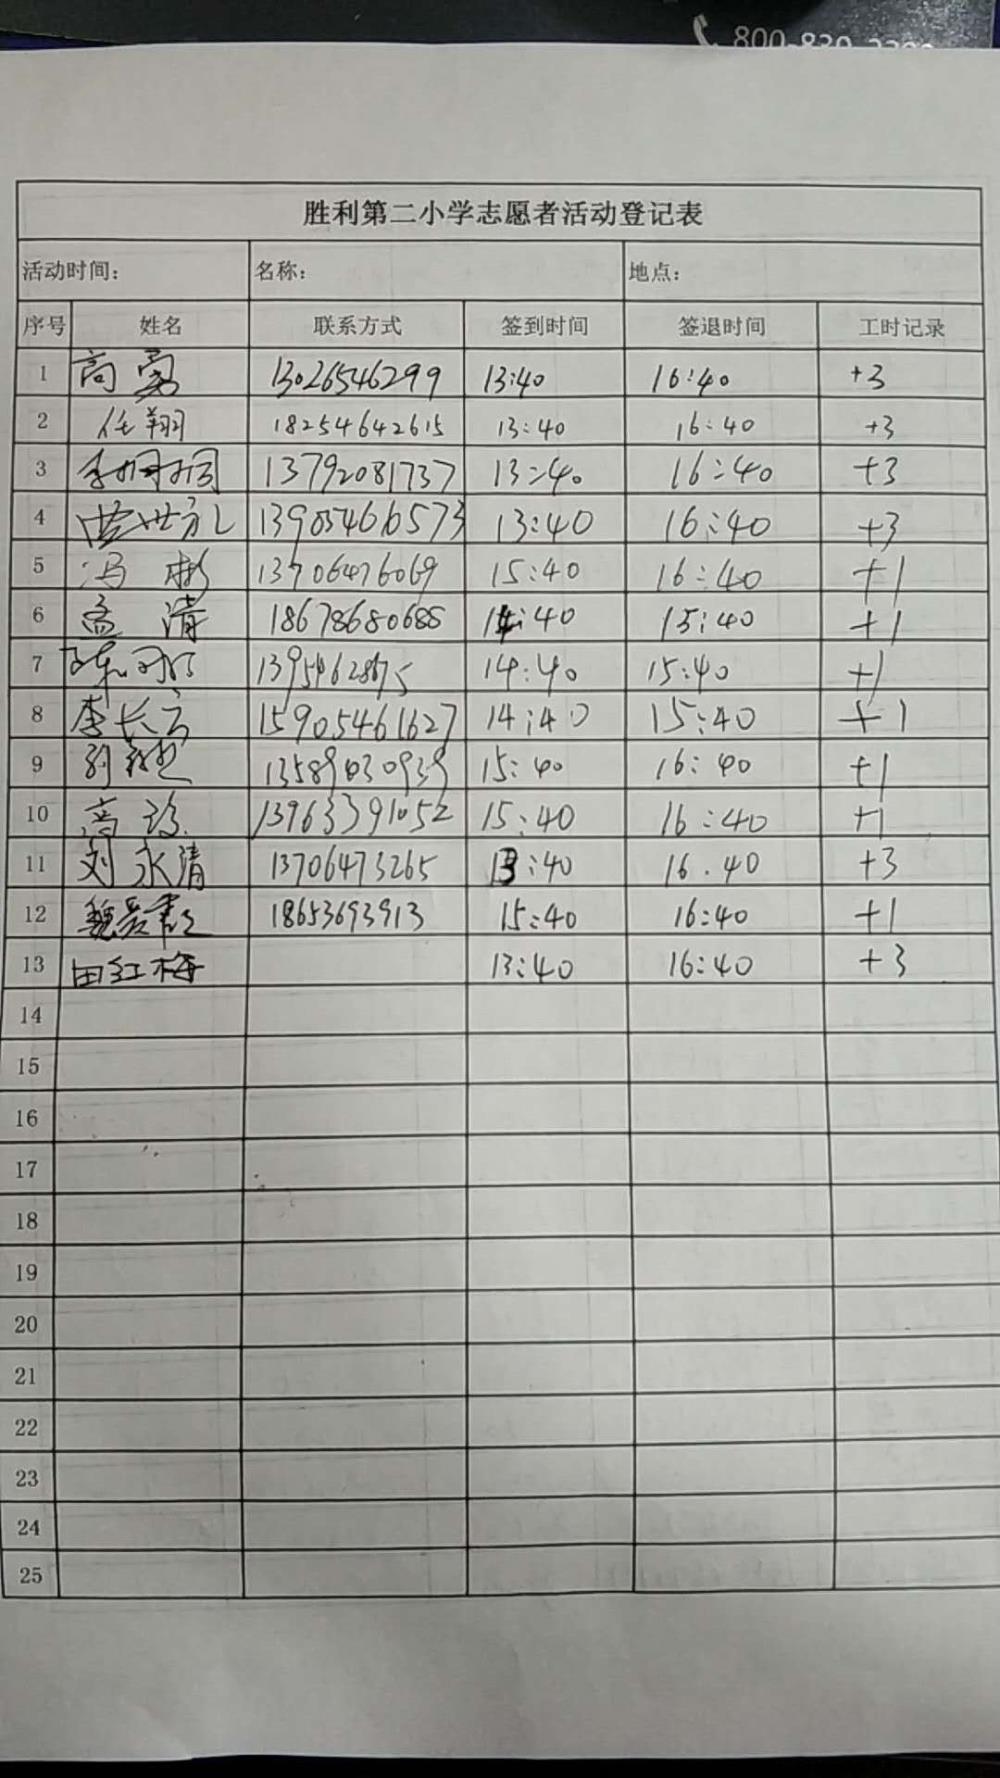 800-830-
胜利第二小学志愿者活动登记表
活动时间: 名称: 地点:
序号 姓名 联系方式 签到时间 签退时间 工时记录
1 高勇 13026546299 13:40 16:40 +3
2 任翔 18254642615 13:40 16:40 +3
3 李 13792081737 13:40 16:40 +3
4 世礼 13905466573 13:40 16:40 +3
5 冯彬 13706476069 15:40 16:40 +1
6 孟清 18678680688 14:40 15:40 +1
7 陈 14:40 15:40 +1
8 李长云 15905461627 14:40 15:40 +1
9 13589030939 15:40 16:40 +1
10 高 13963391052 15:40 16:40 +1
11 刘永清 13706473265 13:40 16.40 +3
12 魏 18653693913 15:40 16:40 +1
13 田红梅 13:40 16:40 +3
14
15
16
17
18
19
20
21
22
23
24
25